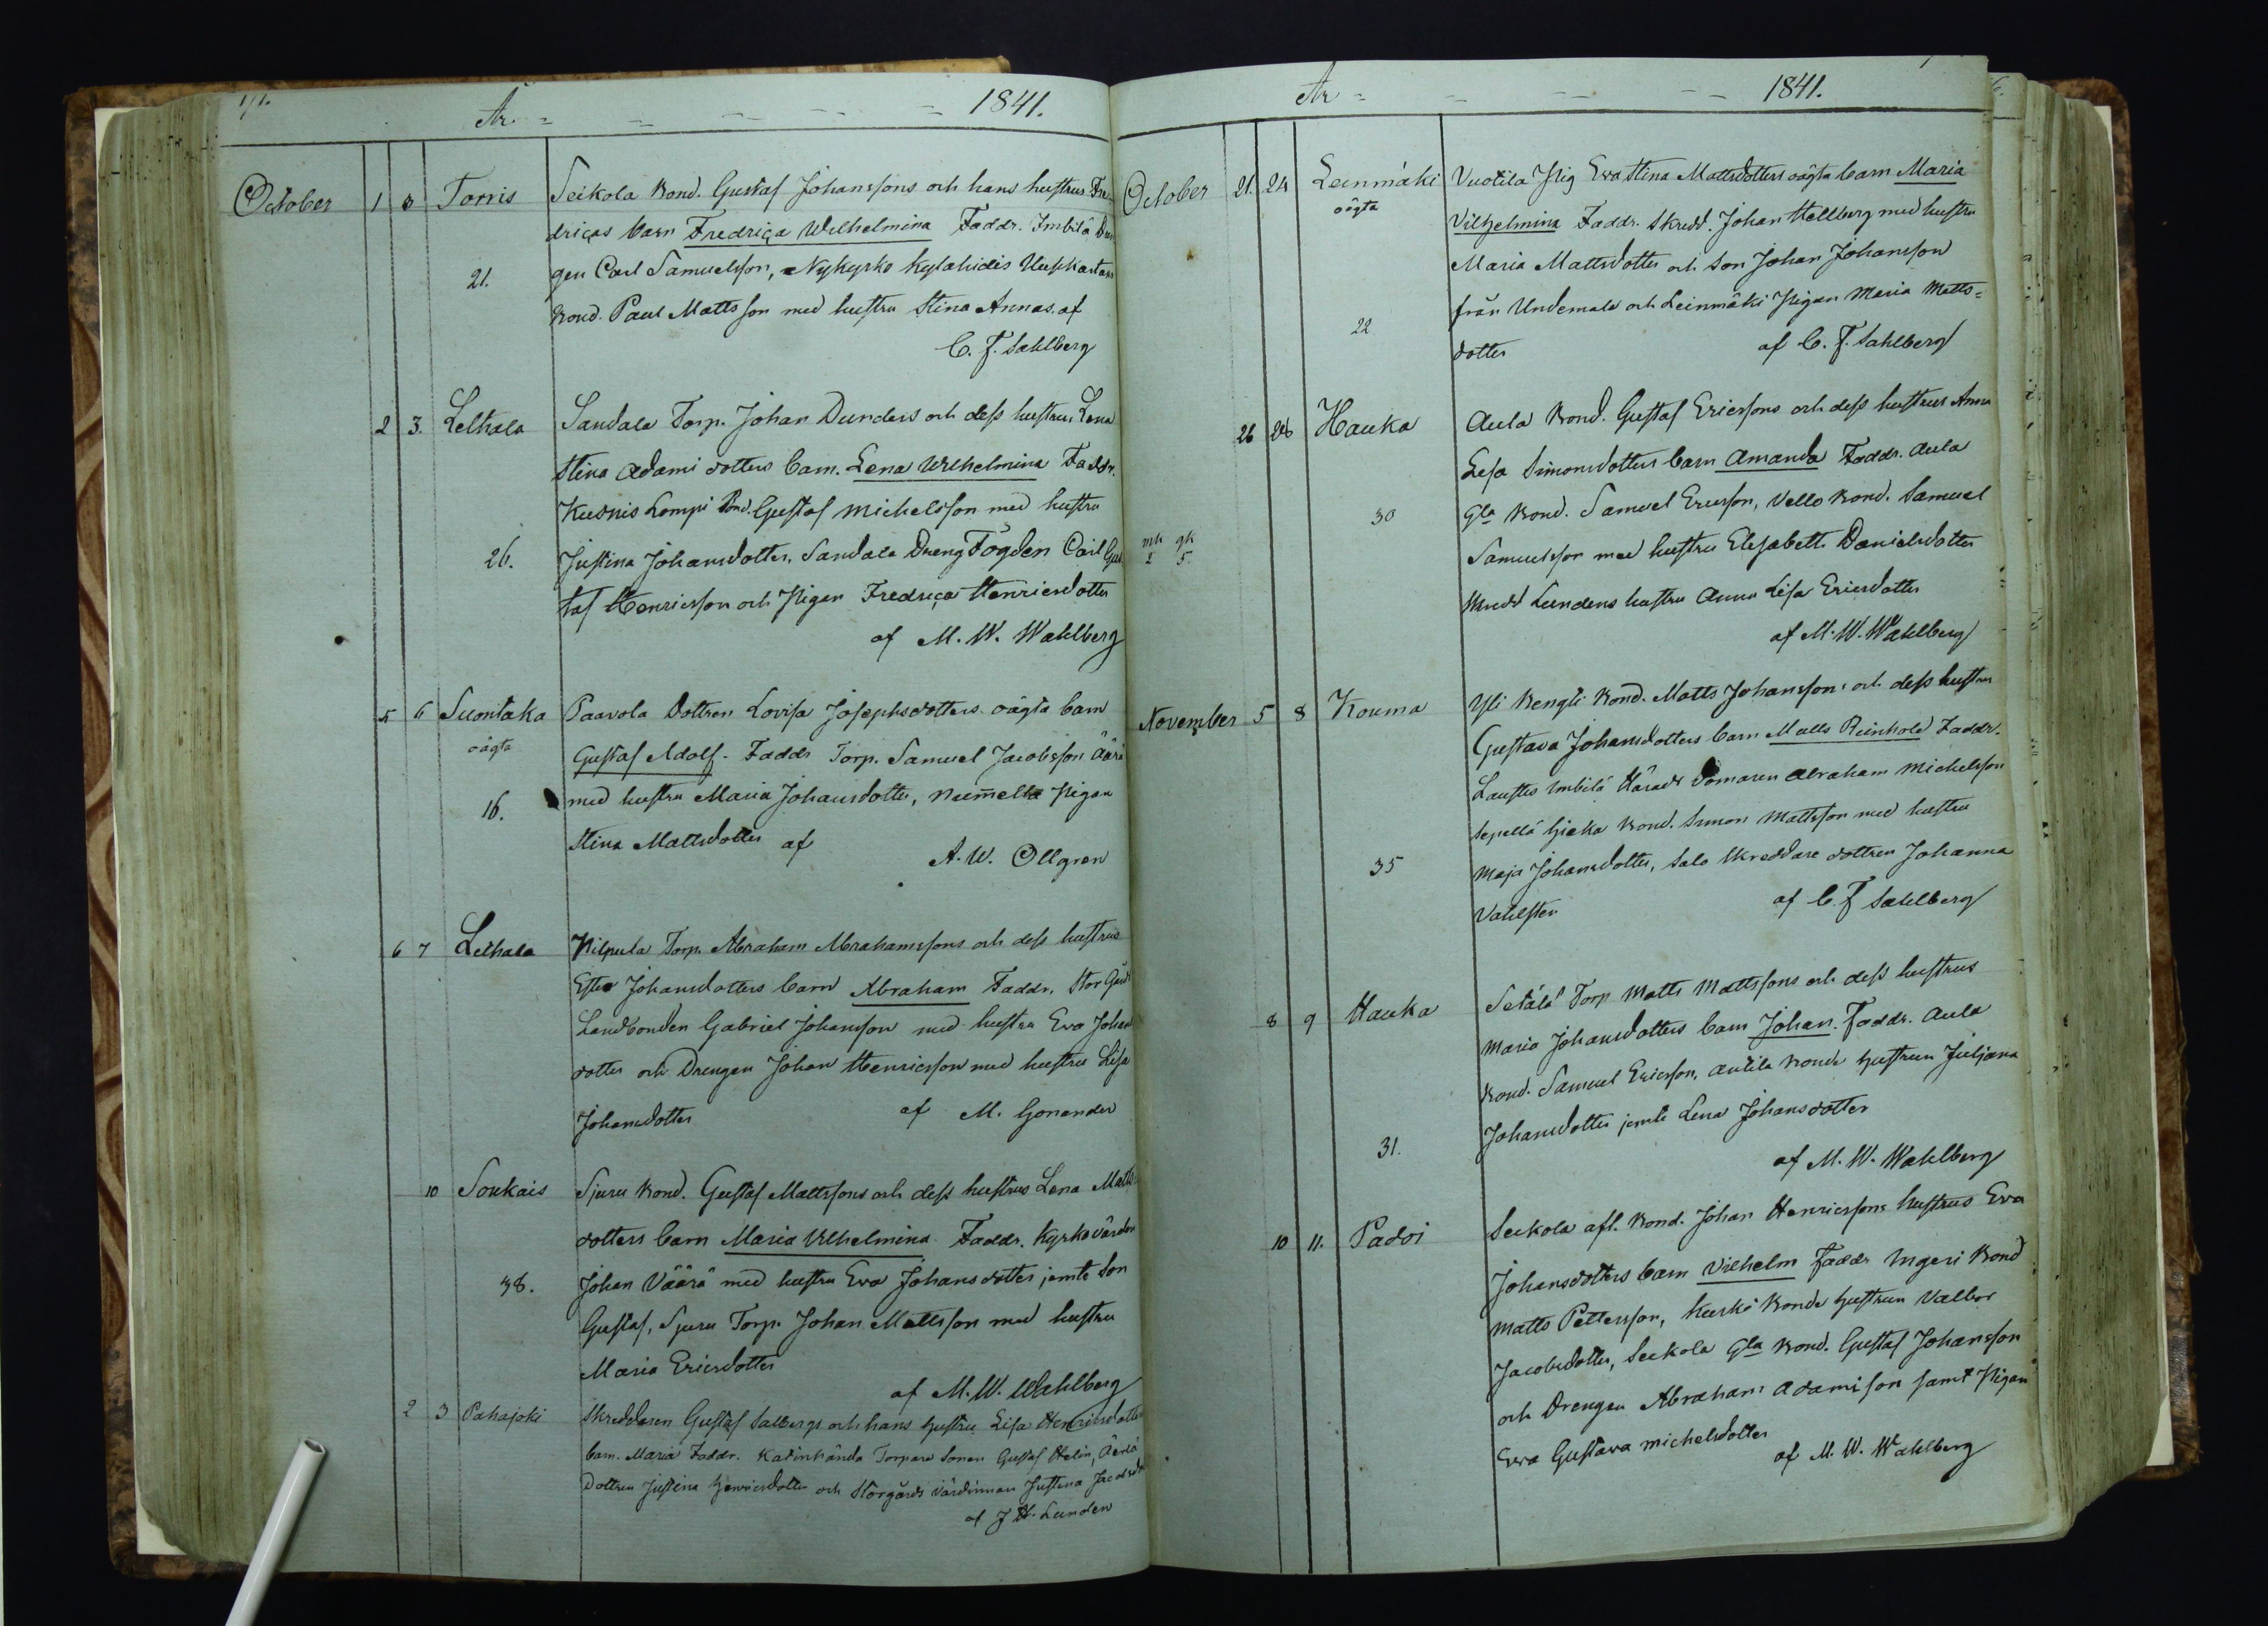 År = = — — — — 1841.
October 1 3 Torris Seikola Bond. Gustaf Johanssons och hans hustrus Fre-
driças barn Fredriça Wilhelmina Faddr. Imbilä Dren
21. gen Carl Samuelsson, Nykyrko kylahidis Uusikartano
Bond. Paul Mattsson med hustru Stina Annas. af
C. F. Sahlberg
2 3. Lethala Sandala Torp. Johan Dunders och dess hustrus Lena
Stina Adami dotters barn. Lena Wilhelmina Faddr.
Kusnis Lompi Bond. Gustaf Michelsson med hustru
26. Justina Johansdotter, Sandala Dreng Fogden Carl Gus
taf Henricsson och Pigan Fredriça Henricsdotter
af M. W. Wahlberg
5 6 Suontaka Paavola Dottren Lovisa Josephsdotters oägta barn
oägta Gustaf Adolf. Faddr Torp. Samuel Jacobsson Ääri
16. med hustru Maria Johansdotter, Num̄ella Pigan
Stina Mattsdotter af A. W. Ollgren
6 7 Lethala Pilpula Torp. Abraham Abrahamssons och dess hustrus
Ester Johansdotters barn Abraham Faddr. Stor Gård
Landbonden Gabriel Johansson med hustru Eva Johans
dotter och Drengen Johan Henricsson med hustru Lisa
Johansdotter af M. Gonander
10 Soukais Sjuru Bond. Gustaf Mattssons och dess hustrus Lena Matts
dotters barn Maria Vilhelmina Faddr. Kyrkovärden
38. Johan Väärä med hustru Eva Johansdotter jemte Son
Gustaf, Sjuru Torp. Johan Mattsson med hustru
Maria Ericsdotter
af M. W. Wahlberg
2 3 Pahajoki Skreddaren Gustaf Salbergs och hans hustru Lisa Henricsdotters
barn. Maria Faddr. Katinhända Torpare Sonen Gustaf Helin,
Dottren Justina Henricsdotter och Storgårds värdinnan Justina Jacobsdr
af J H. Lunden
År = — — — — 1841.
October 21. 24 Leinmäki Vuotila Pig Eva Stina Mattsdotters oägta barn Maria
oägta Vilhelmina Faddr. Skredd. Johan Hellberg med hustru
Maria Mattsdotter och Son Johan Johansson
22 från Undemala och Leinmäki Pigan Maria Matts=
dotter af C. F. Sahlberg
26 28 Hauka Aula Bond. Gustaf Ericssons och dess hustrus Anna
Lisa Simonsdotters barn Amanda Faddr. Aula
30 Gla Bond. Samuel Ericsson, Vello Bond. Samuel
mk gk Samuelsson med hustru Elisabeth Danielsdotter
5. Skredd Lundens hustru Anna Lisa Ericsdotter
af M. W. Wahlberg
November 5 8 Kouma Yli Rengti Bond. Matts Johanssons och dess hustrus
Gustava Johansdotters barn Matts Reinhold Faddr.
Laustis Imbilä Härads domaren Abraham Michelsson
Seppälä Hjeka Bond. Simon Mattsson med hustru
35 Maja Johansdotter, Salo Skreddare dottren Johanna
Vahlsten af C. F Sahlberg
8 9 Hauka Setälä Torp Matts Mattssons och dess hustrus
Maria Johansdotters barn Johan. Faddr. Aula
Bond. Samuel Ericsson, Autila Bonde hustrun Juljana
31. Johansdotter jemte Lena Johansdotter
af M. W. Wahlberg
10 11. Padoi Seikola afl. Bond. Johan Henricssons hustrus Eva
Johansdotters barn Vilhelm Faddr Ingeri Bond
Matts Pettersson, Kuskö Bonde hustrun Valbor
Jacobsdotter, Seikola Gla Bond. Gustaf Johansson
och Drengen Abraham Adamisson samt Pigan
Eva Gustava Michelsdotter
af M. W. Wahlberg